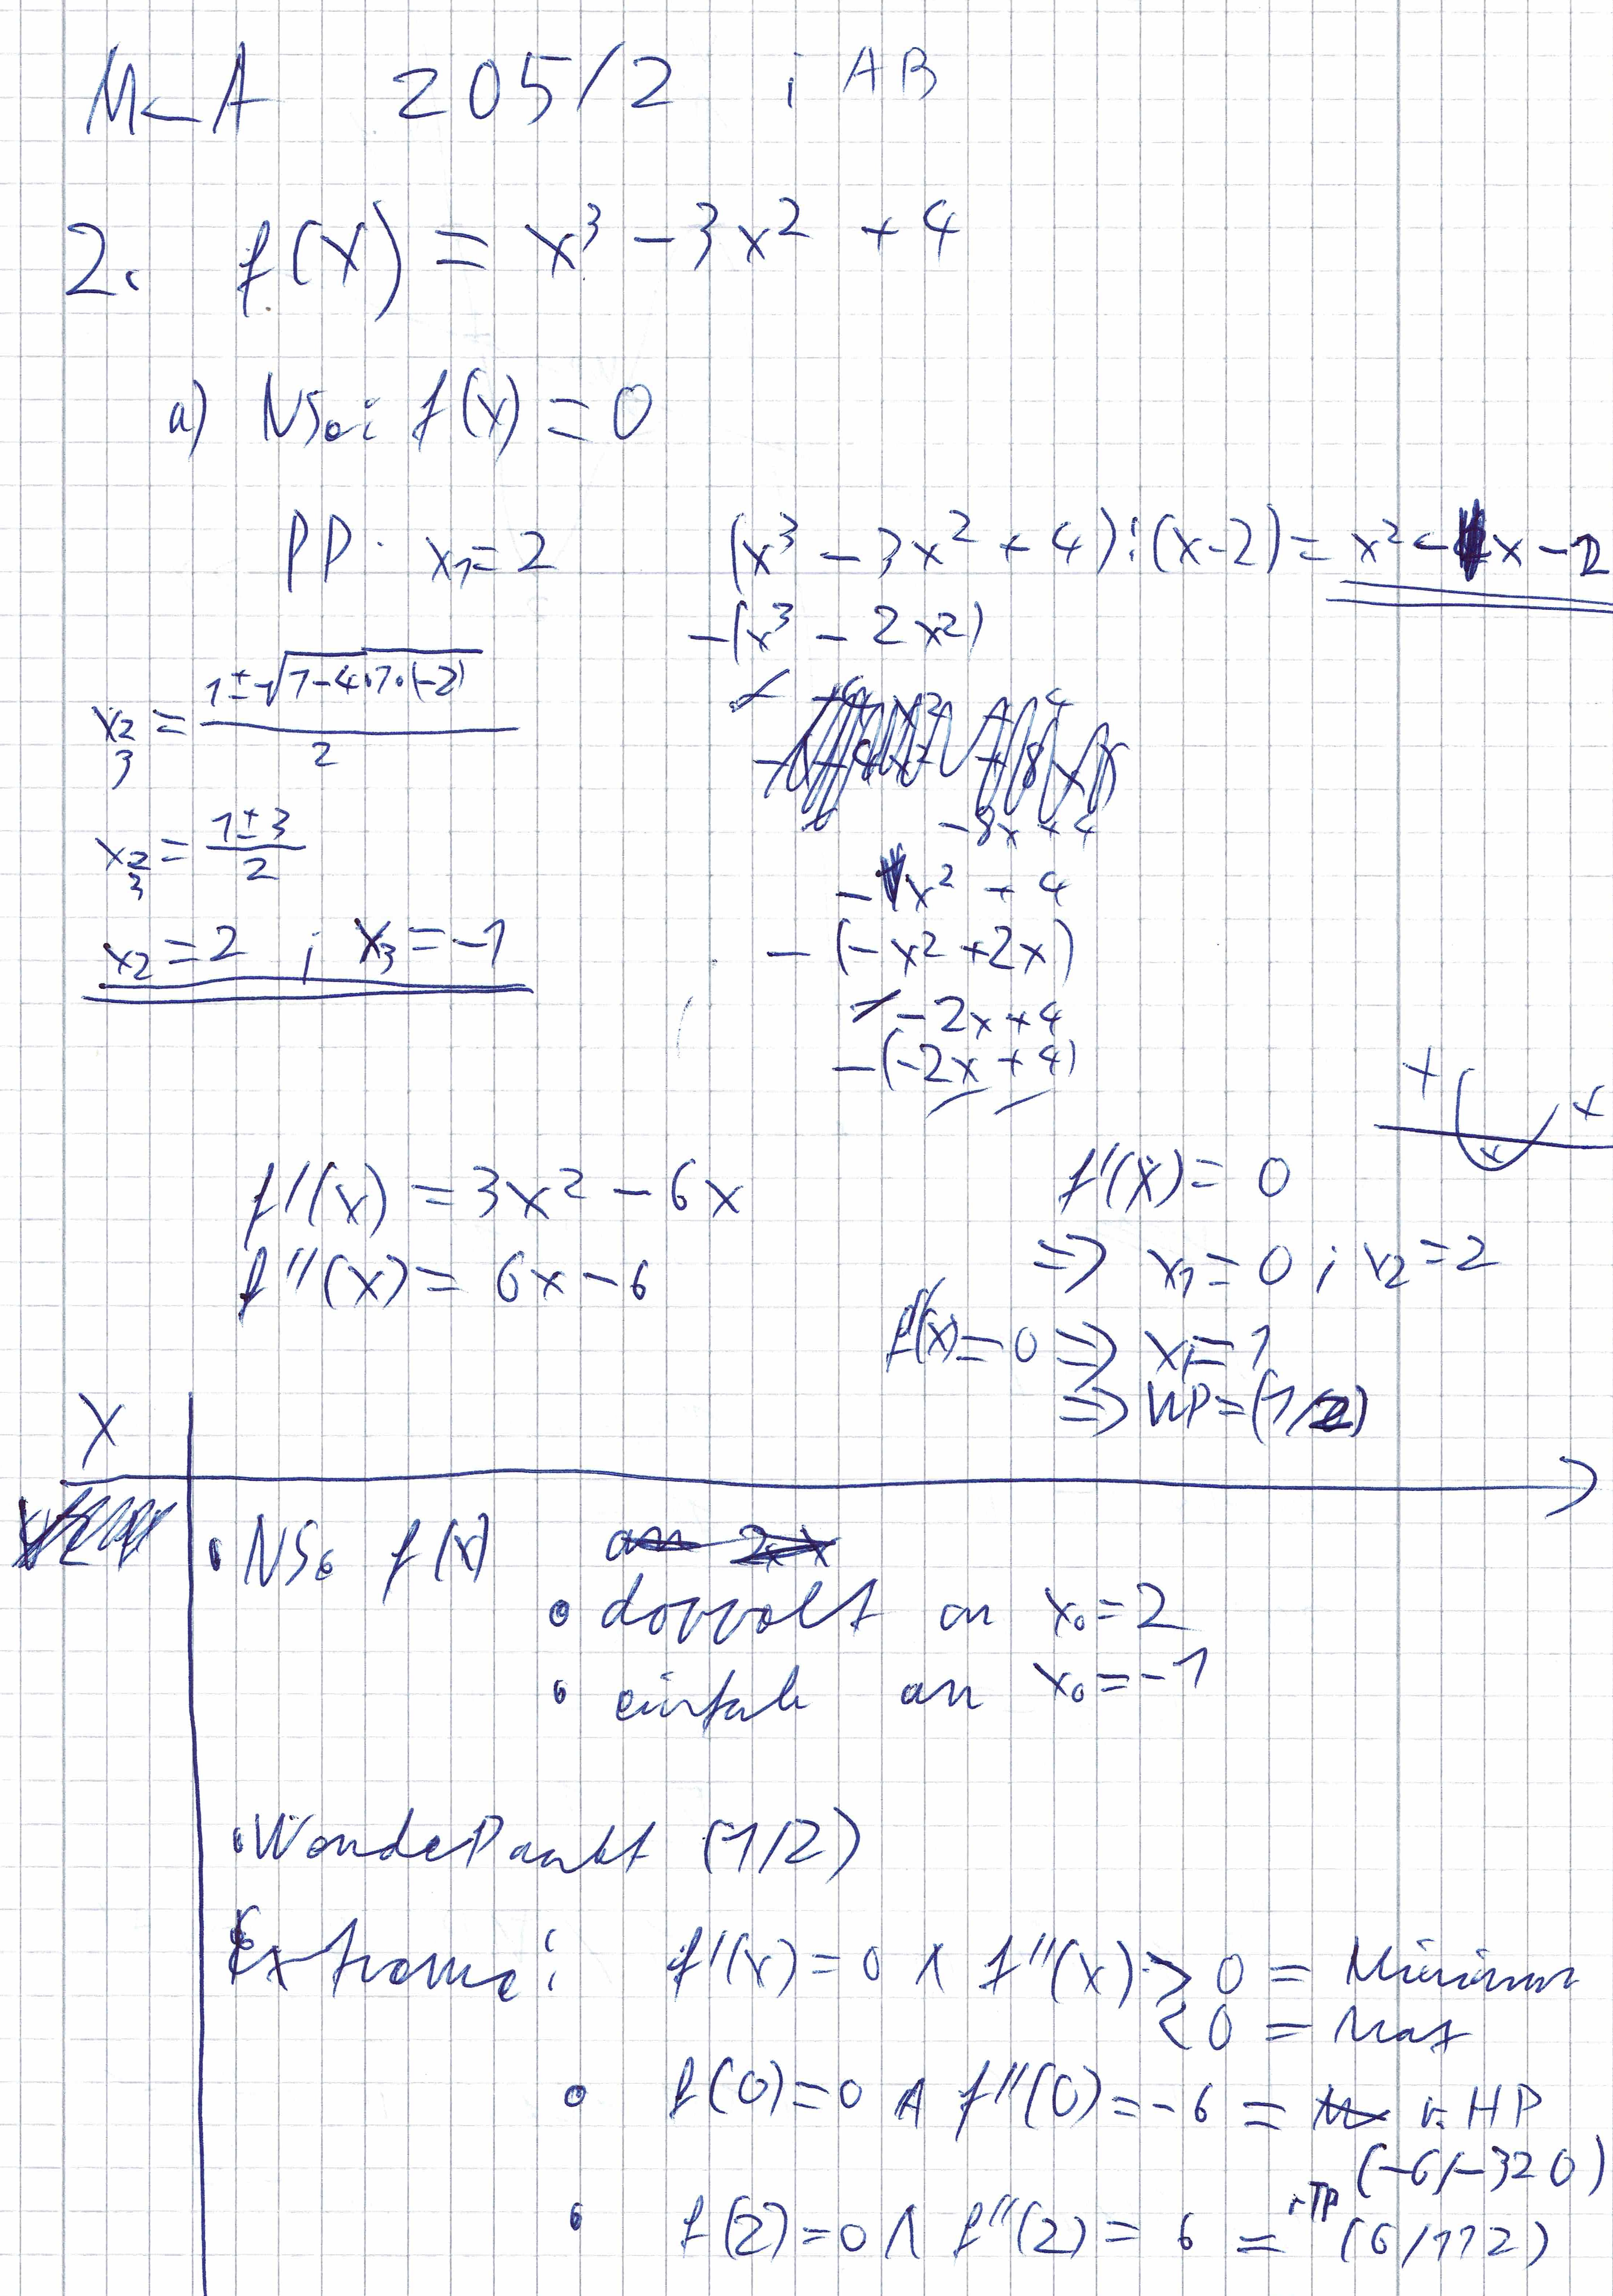 M-A 205/2 ; AB
2. f(x) = x³ - 3x² + 4
a) NS.: f(x) = 0
PP. x₁ = 2 (x³ - 3x² + 4) : (x-2) = x² - x - 2
-(x³ - 2x²)
x₂ ₃ = (1 ± √(1-4·1·(-2))) / 2
-8x + 4
x₂ ₃ = (1 ± 3) / 2
-1x² + 4
x₂ = 2 ; x₃ = -1 -(-x² + 2x)
-2x + 4
-(-2x + 4)
+ x x
f'(x) = 3x² - 6x f'(x) = 0
f''(x) = 6x - 6 => x₁ = 0 ; x₂ = 2
f''(x) = 0 => x₁ = 1
=> WP = (1/2)
X
• NS. f(x)
• doppelt an x₀ = 2
• einfach an x₀ = -1
• WendePunkt (1/2)
• Extrema: f'(x) = 0 ∧ f''(x) > 0 = Minimum
< 0 = Max
• f(0) = 0 ∧ f''(0) = -6 = r. HP
(-6/-320)
• f(2) = 0 ∧ f''(2) = 6 = r TP (6/112)